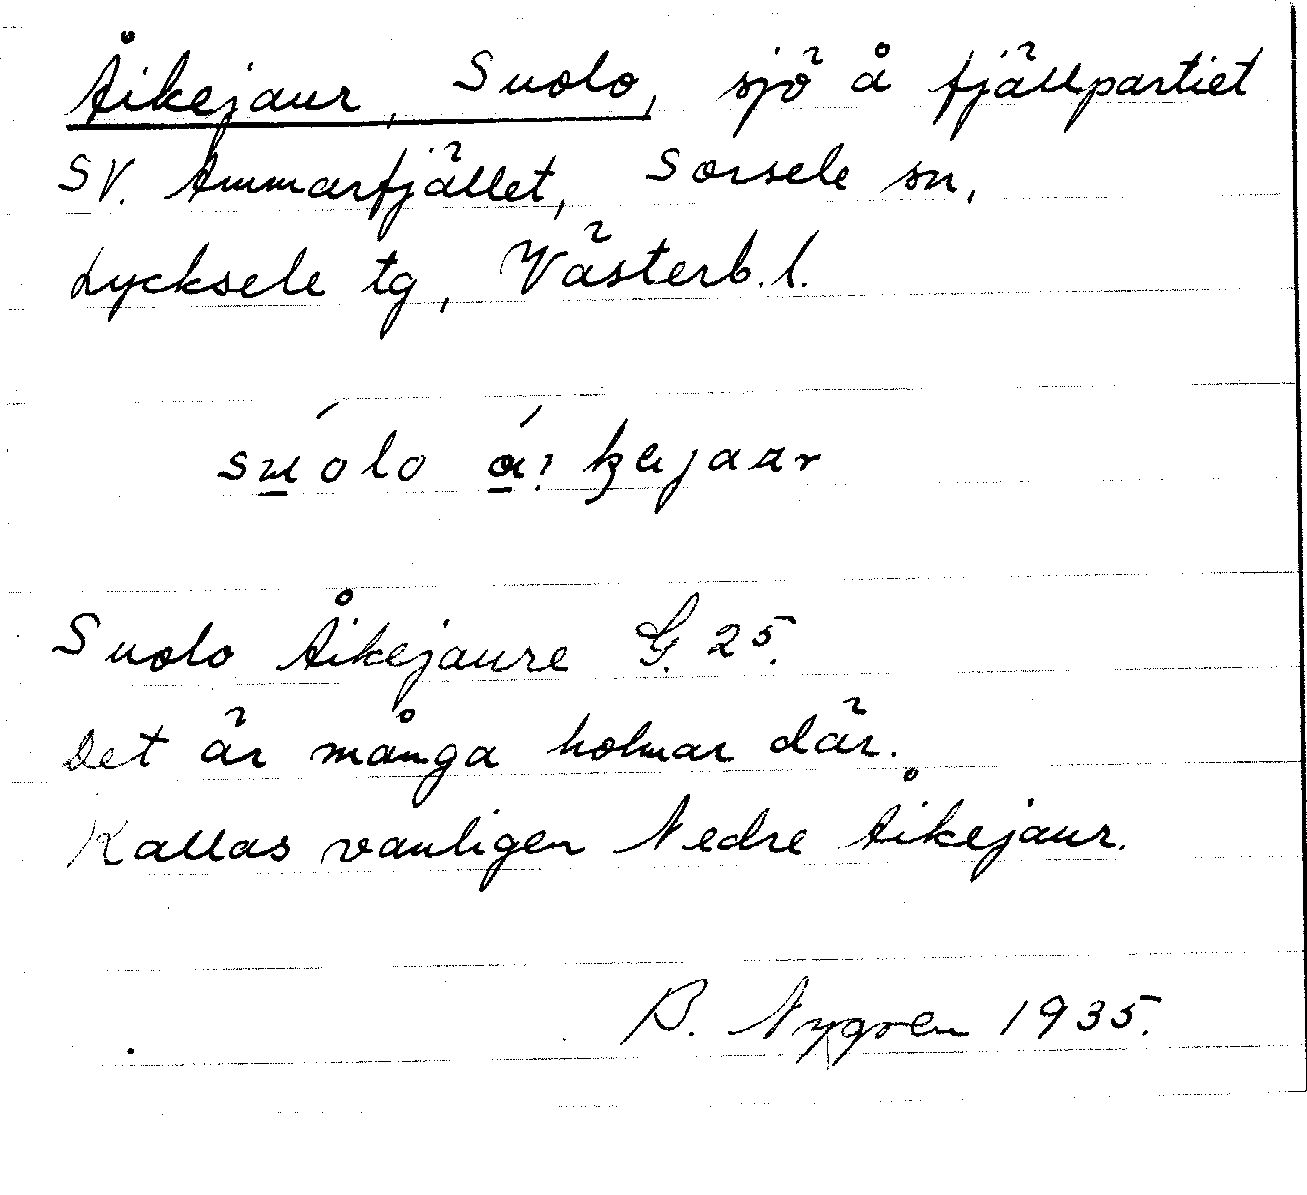 Åikejaur, Suolo, sjö å fjällpartiet
SV. Ammarfjället, Sorsele sn,
Lycksele tg, Västerb. l.
suólo
Suolo Åikejaure G. 25.
Det är många holmar där.
Kallas vanligen Nedre Åikejaur.
B. Nygren 1935.